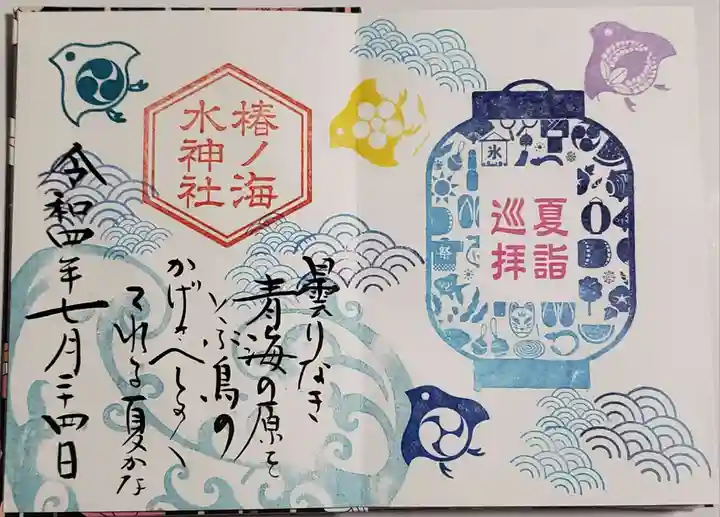 夏詣
巡拝
氷
祭
椿ノ海
水神社
曇りなき
青海の原を
とぶ鳥の
かげさへしるく
てれる夏かな
令和四年七月二十四日